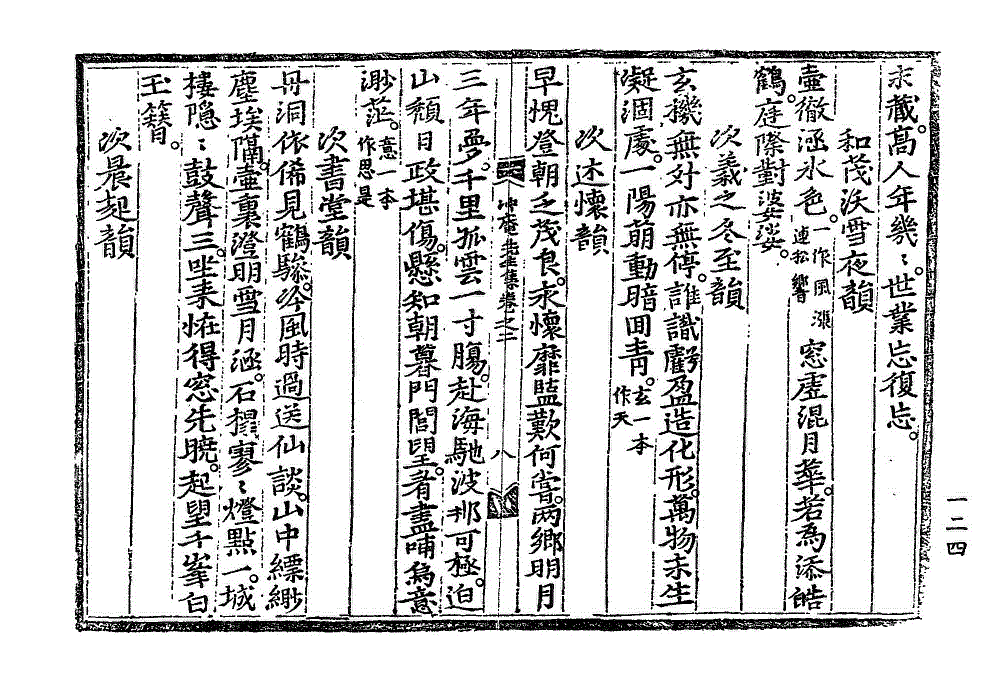 藏。高人年幾〻。世業忘復忘。
和茂沃雪夜韻
壺徹涵氷色。一作風漲連松響窓虛混月華。若爲添皓
鶴。庭際對婆娑。
次羲之冬至韻
玄機無对亦無停。誰識虧盈造化形。萬物未生
凝涸處。一陽萌動暗回青。玄一本作天
次述懷韻
早愧登朝乏茂良。永懷靡盬歎何甞。两鄉明月
冲庵先生集卷之二 八
三年夢。千里孤雲一寸膓。赴海馳波那可極。迫
山頹日政堪傷。懸知朝暮門閭望。看盡哺烏意
渺茫。意一本作思是
次書堂韻
丹洞依俙見鶴驂。泠風時過送仙談。山中縹緲
塵埃隔。壺裏澄明雪月涵。石榻寥〻燈點一。城
樓隱〻鼓聲三。坐来恠得窓先曉。起望千峯白
玉簪。
次晨起韻
一二四